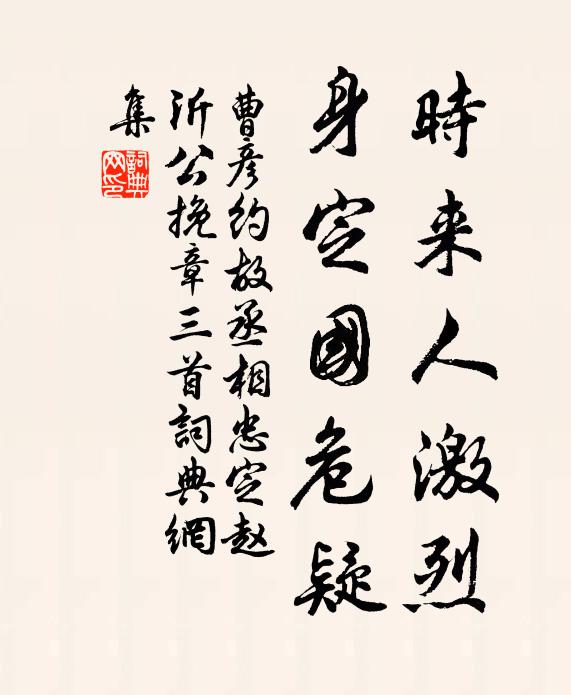 時来人激烈
身定國危疑
曹彦約故丞相忠定趙
沂公挽章三首詞典網
集
詞典
网印